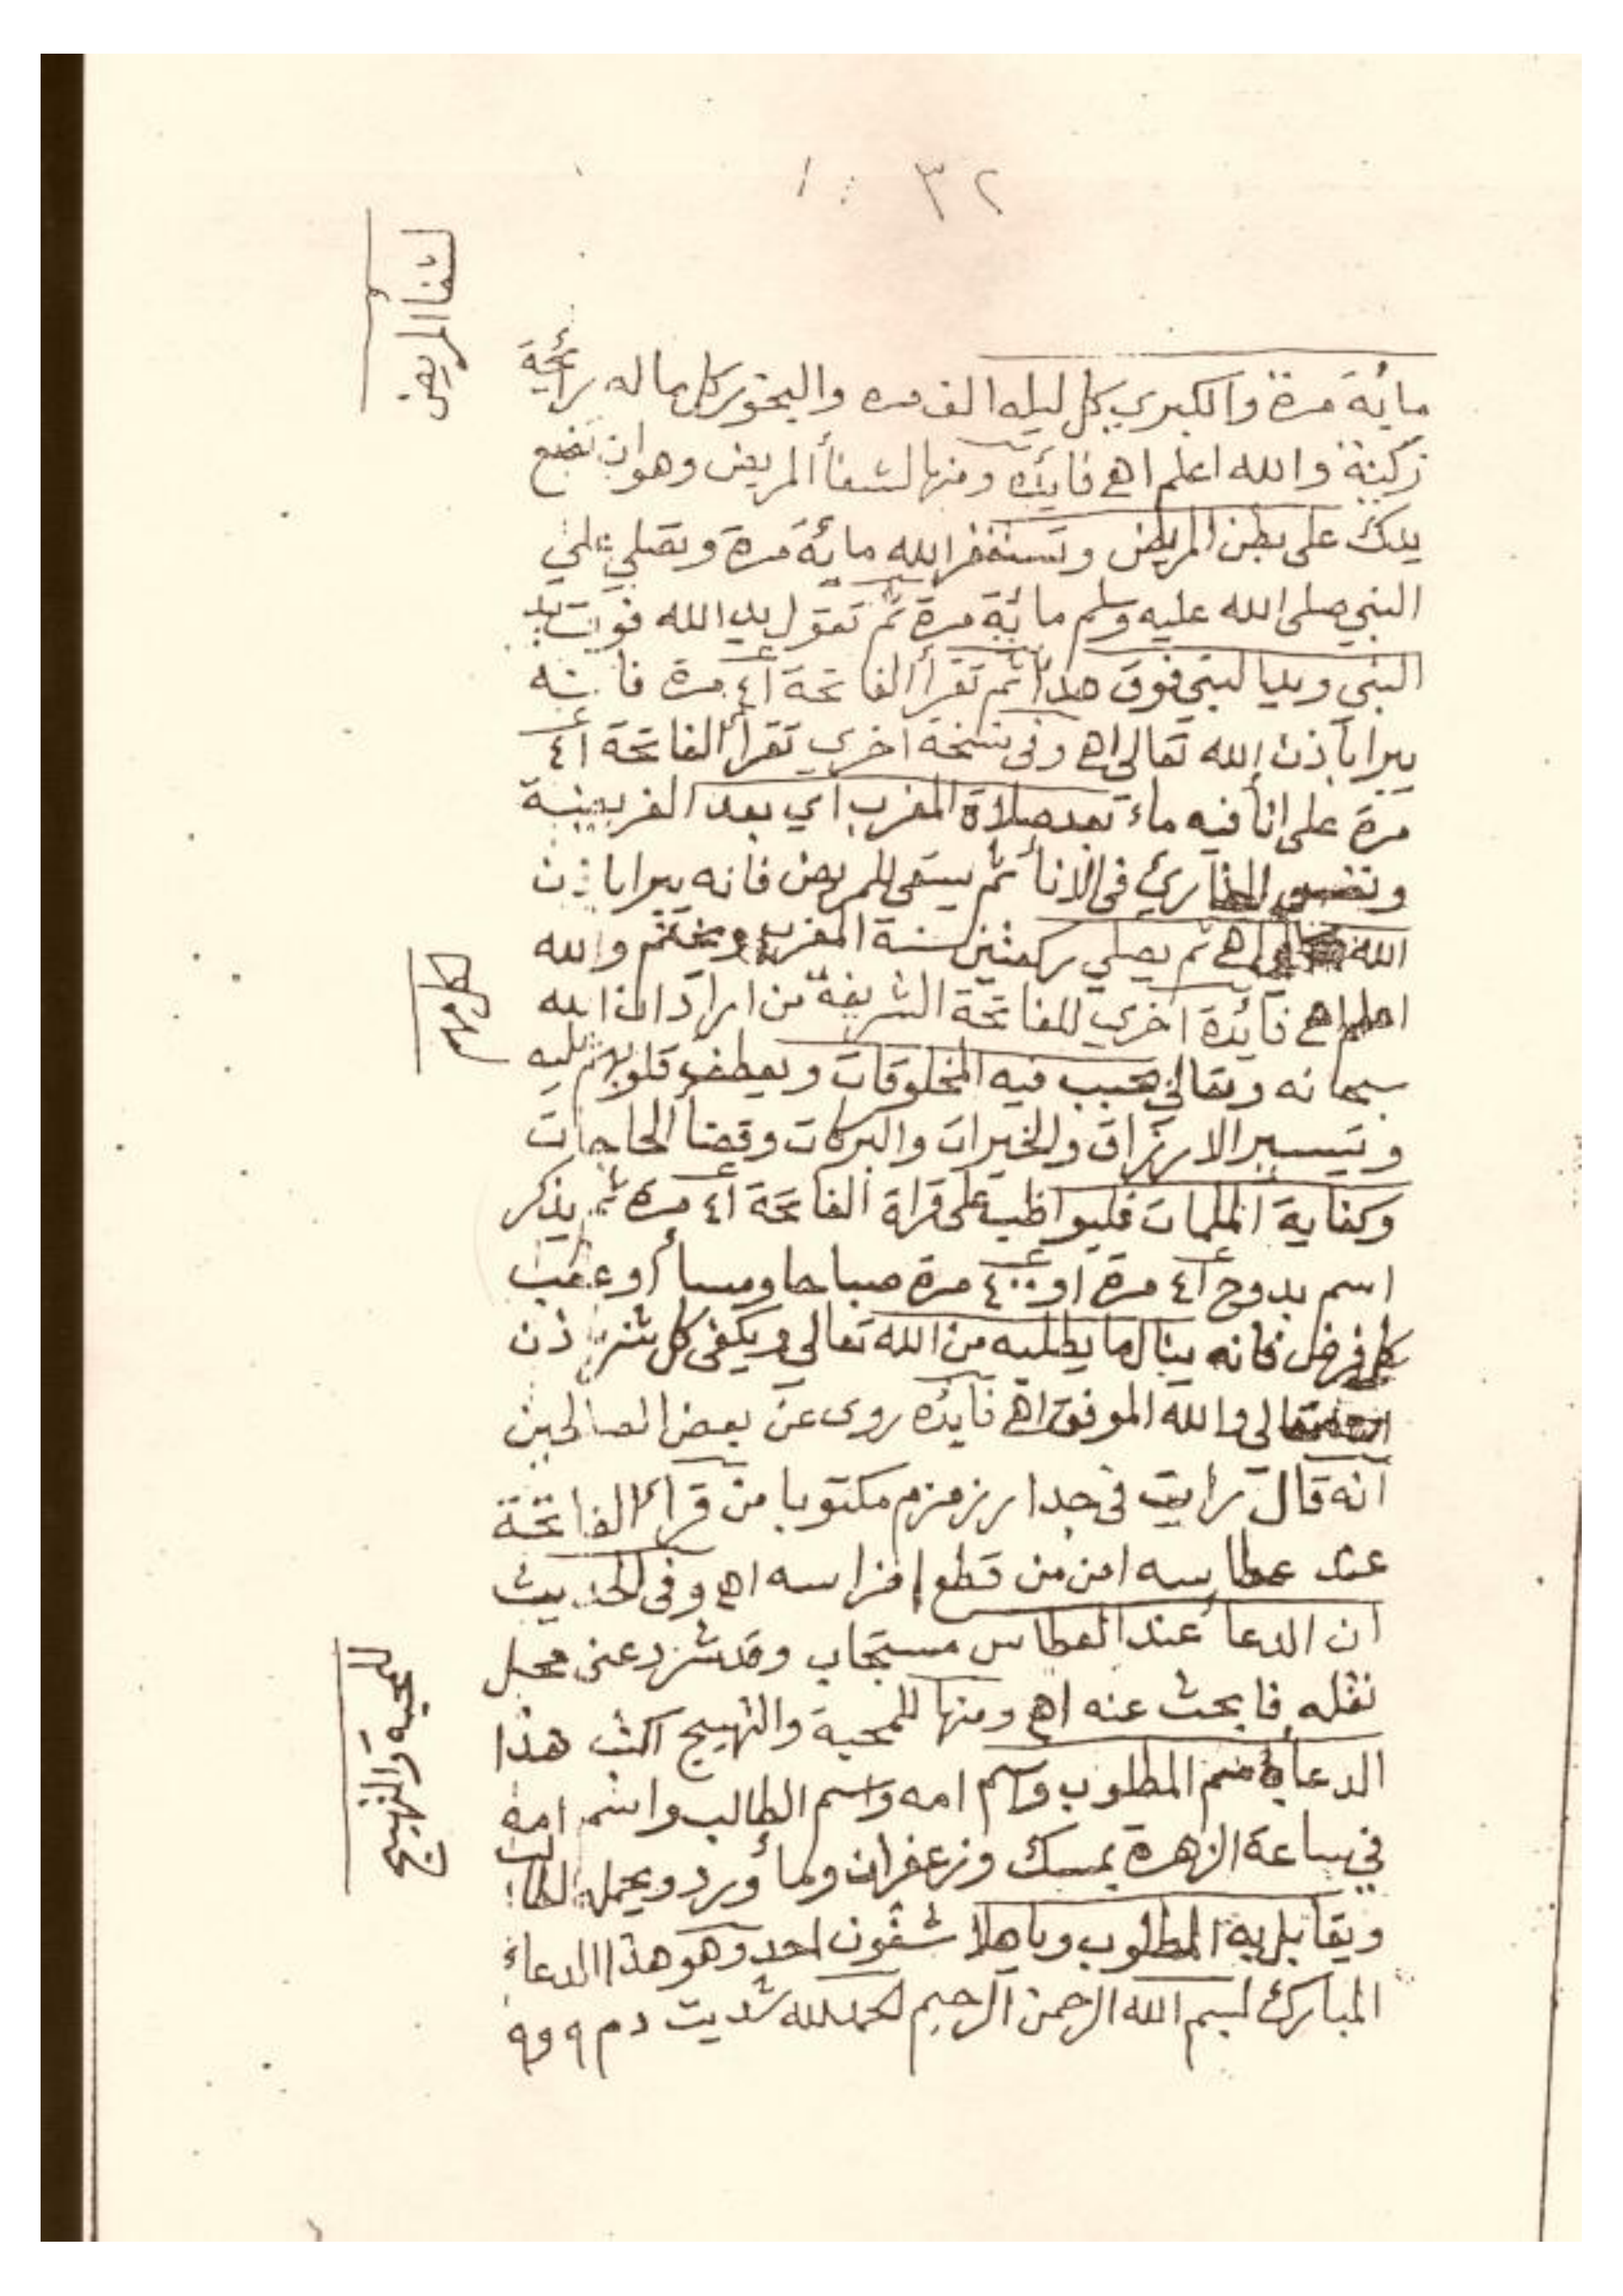 ٣٢
لشفأ المريض
مائة مرة والكبري كل ليله الف مره والبخور كل ماله رائحة
زكية والله اعلم اهـ فائده ومنها لشفأ المريض وهو ان تضع
يدك على بطن المريض وتستغفر الله مائة مرة وتصلي علي
النبي صلى الله عليه وسلم مائة مرة ثم تقول يد الله فوق يد
النبي ويد النبي فوق هذا ثم تقرأ الفاتحة ٤١ مرة فانه
يبرا باذن الله تعالي اهـ وفى نسخة اخري تقرأ الفاتحة ٤١
مرة على انأ فيه ماء بعد صلاة المغرب اي بعد الفريضة
القارئ فى الانأ ثم يسقى للمريض فانه يبرا باذن
الله اهـ ثم يصلي ركعتين سنة المغرب ويختم والله
اعلم اهـ فائدة اخري للفاتحة الشريفة من اراد ان الله
لكل مهم
سبحانه وتعالي يحبب فيه المخلوقات ويعطف قلوبهم عليه
وتيسير الارزاق والخيرات والبركات وقضأ الحاجات
وكفاية الملمات فليواظب على قراة الفاتحة ٤١ مرة ثم يذكر
اسم بدوح ٤١ مرة او ٤٠٠ مرة صباحا ومسأ او عقب
كل فرض فانه ينال ما يطلبه من الله تعالي ويكفى كل شر باذن
الله تعالي والله الموفق اهـ فائده روى عن بعض الصالحين
انه قال رايت فى جدار زمزم مكتوبا من قرأ الفاتحة
عند عطاسه امن من قطع اضراسه اهـ وفى الحديث
ان الدعأ عند العطاس مستجاب وقد شرد عنى محل
نقله فابحث عنه اهـ ومنها للمحبة والتهييج اكتب هذا
للمحبه والتهييج
الدعأ المطلوب واسم امه واسم الطالب واسم امه
في ساعة الزهرة بمسك وزعفران ومأ ورد ويحمله الطالب
ويقابل به المطلوب وباهلا شقون احد وهو هذا الدعاء
المبارك بسم الله الرحمن الرحيم الحمدلله شديت دم ٩ و٩